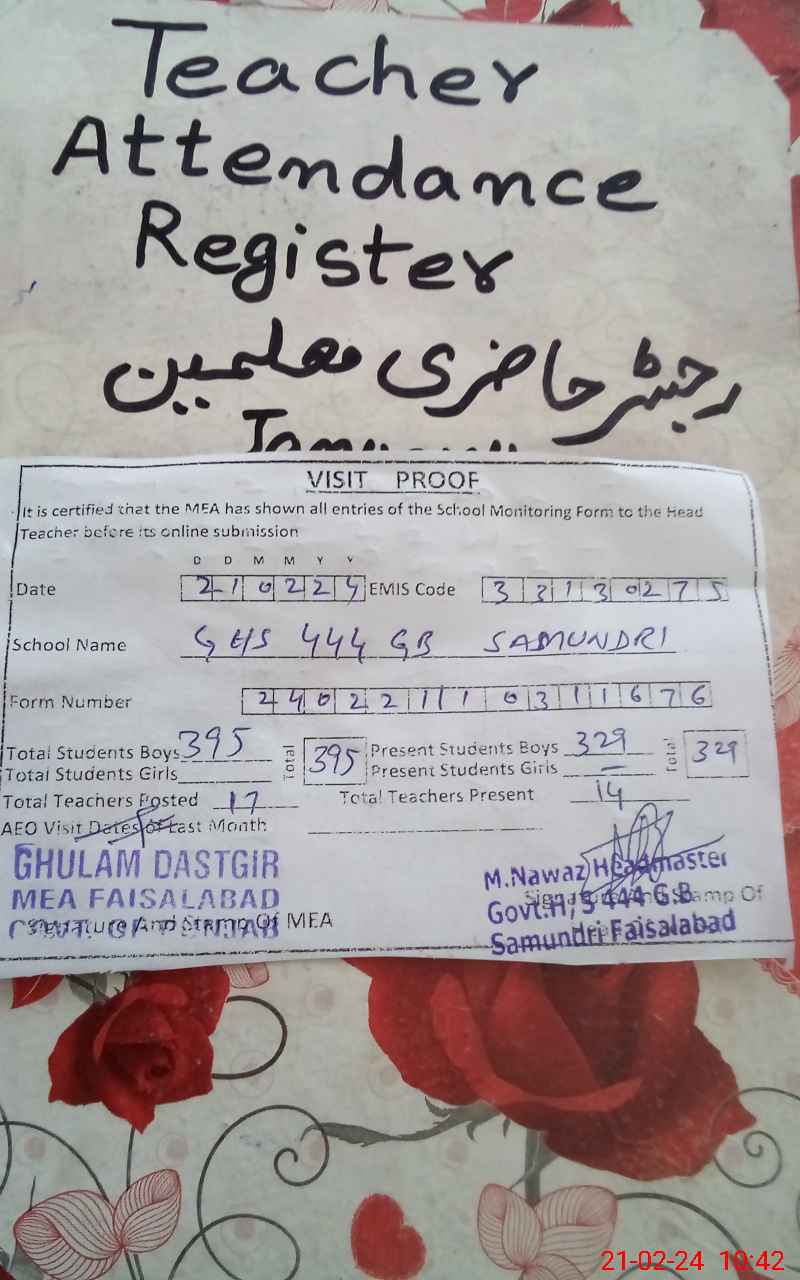 Teacher
Attendance
Register
رجسٹر حاضری معلمین
VISIT PROOF
It is certified that the MEA has shown all entries of the School Monitoring Form to the Head
Teacher before its online submission
D D M M Y Y
Date 210224 EMIS Code 33130275
School Name GHS 444 GB SAMUNDRI
Form Number 24022110311676
Total Students Boys 395 Total 395 Present Students Boys 329 Total 329
Total Students Girls Present Students Girls —
Total Teachers Posted 17 Total Teachers Present 14
AEO Visit Dates of Last Month
GHULAM DASTGIR
MEA FAISALABAD
GOVT. OF PUNJAB
Signature And Stamp Of MEA
M.Nawaz Headmaster
Govt.H,S 444 G.B
Samundri Faisalabad
Signature And Stamp Of
21-02-24 10:42